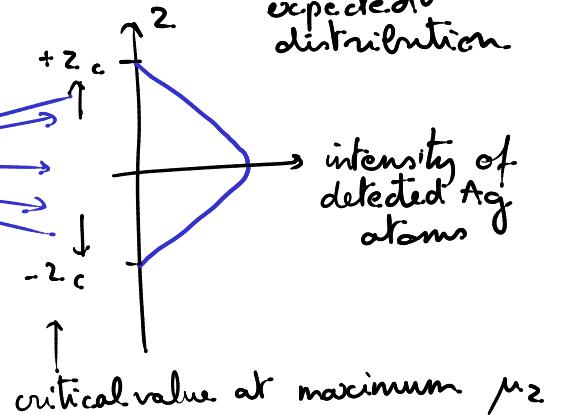 expected
distribution
z
+z c
intensity of
detected Ag
atoms
-z c
critical value at maximum μz